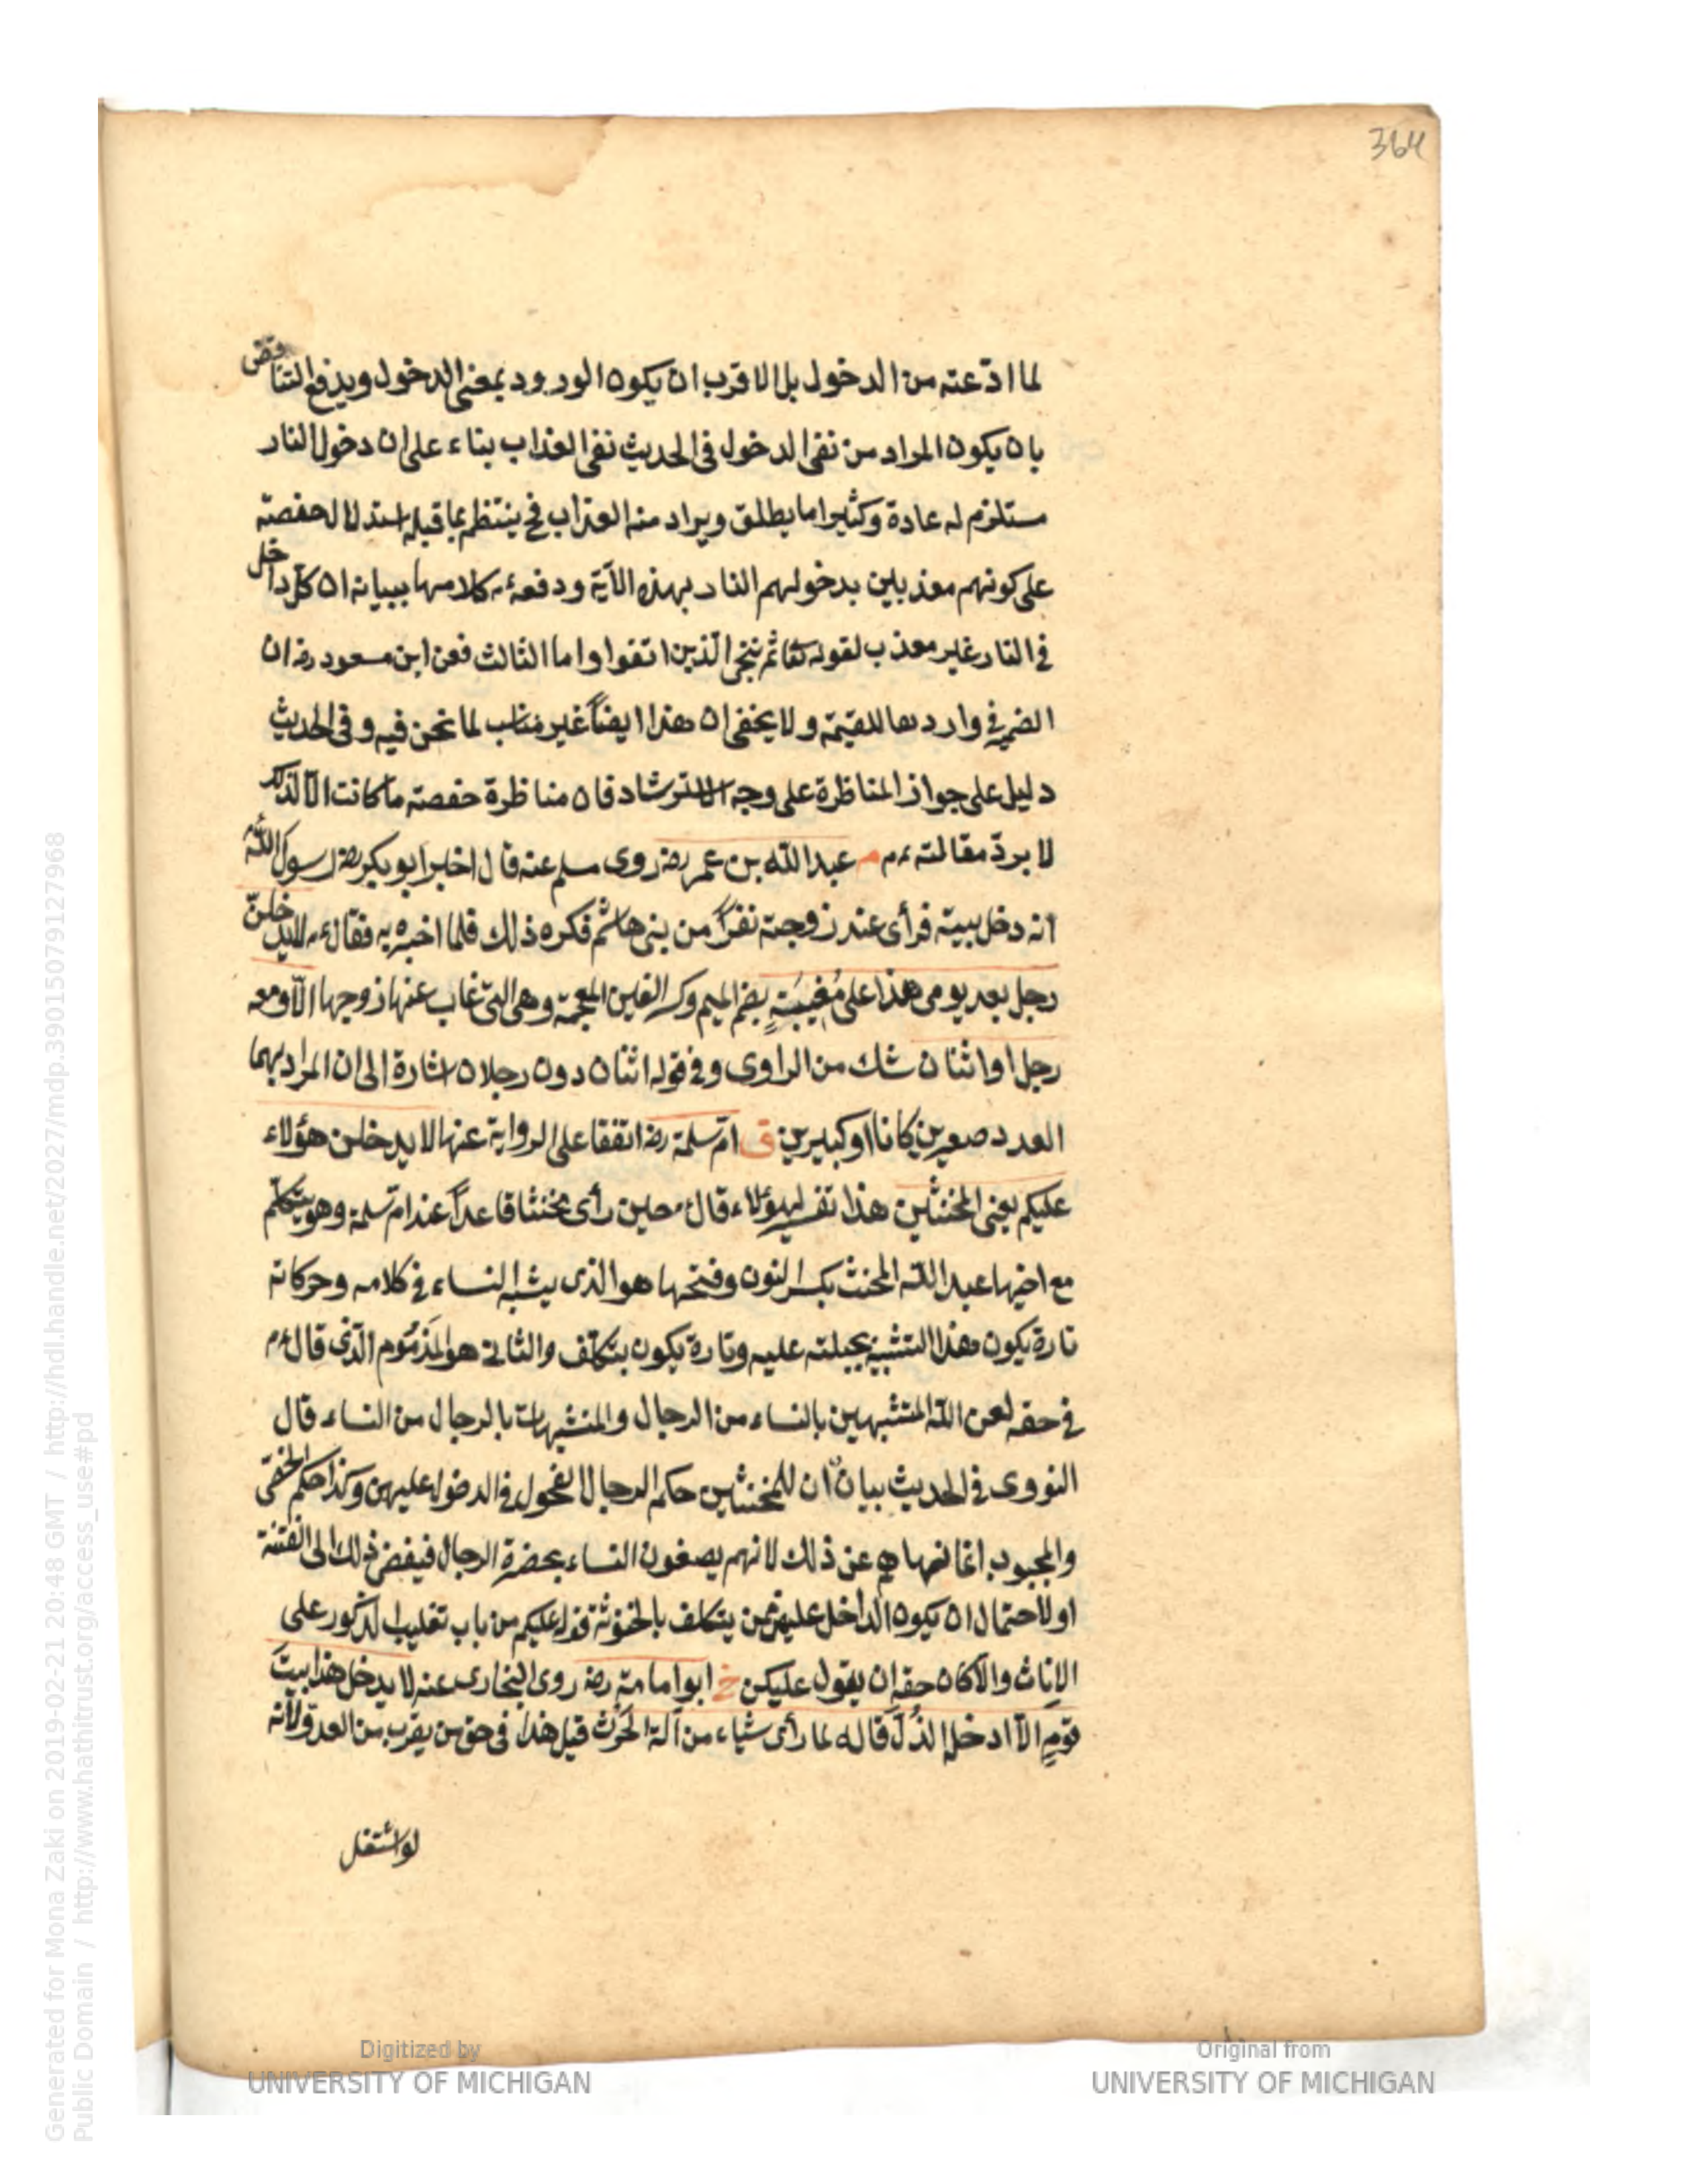 364
لما ادّعته من الدخول بل الاقرب ان يكون الورود بمعنى الدخول ويدفع التناقض
بان يكون المراد من نفى الدخول فى الحديث نفى العذاب بناء على ان دخول النار
مستلزم له عادة وكثيرا ما يطلق ويراد منه العذاب فح ينتظم بما قبله استدلال حفصة
على كونهم معذبين بدخولهم النار بهذه الآية ودفعه عم كلامها ببيانه ان كل داخل
فى النار غير معذب لقوله تعا ثم ننجى الذين اتقوا واما الثالث فعن ابن مسعود رضه ان
الضمير فى واردها للقيمة ولا يخفى ان هذا ايضاً غير مناسب لما نحن فيه وفى الحديث
دليل على جواز المناظرة على وجه الاسترشاد فان مناظرة حفصة ما كانت الا لذلك
لا بردّ مقالته عم م عبد الله بن عمر رضه روى مسلم عنه قال اخبر ابو بكر رضه رسول الله
انه دخل بيته فرأى عند زوجته نفراً من بنى هاشم فكره ذلك فلما اخبره به فقال عم لا يدخلنّ
رجل بعد يومى هذا على مُغِيبَةٍ بضم الميم وكسر الغين المعجمة وهى التى غاب عنها زوجها الّا ومعه
رجل او اثنان شك من الراوى وفى قوله اثنان دون رجلان اشارة الى ان المراد بهما
العدد صغيرين كانا او كبيرين ق امّ سلمة رضه اتفقا على الرواية عنها لا يدخلن هؤلاء
عليكم يعنى المخنثين هذا تفسير لهؤلاء قال عم حين رأى مخنثا قاعداً عند امّ سلمة وهو يتكلم
مع اخيها عبد الله المخنث بكسر النون وفتحها هو الذى يشبه النساء فى كلامه وحركاته
تارة يكون هذا التشبيه بجبلته عليه وتارة يكون بتكلف والثانى هو المذموم الذى قال عم
فى حقه لعن الله المتشبهين بالنساء من الرجال والمتشبهات بالرجال من النساء قال
النووى فى الحديث بيان ان للمخنثين حكم الرجال الفحول فى الدخول عليهن وكذا حكم الخصى
والمجبوب انما نهاهم عن ذلك لانهم يصفون النساء بحضرة الرجال فيفضى ذلك الى الفتنة
او لاحتمال ان يكون الداخل عليهن ممن يتكلف بالخنوثة قوله عليكم من باب تغليب الذكور على
الاناث والا كان حقه ان يقول عليكن خ ابو امامة رضه روى البخارى عنه لا يدخل هذا بيت
قومٍ الّا ادخل الذُلّ قاله لما رأى شياء من آلة الحرث قيل هذا فى حق من يقرب من العدو لانه
لو اشتغل
Digitized by
UNIVERSITY OF MICHIGAN
Original from
UNIVERSITY OF MICHIGAN
Generated for Mona Zaki on 2019-02-21 20:48 GMT / http://hdl.handle.net/2027/mdp.39015079127968
Public Domain / http://www.hathitrust.org/access_use#pd